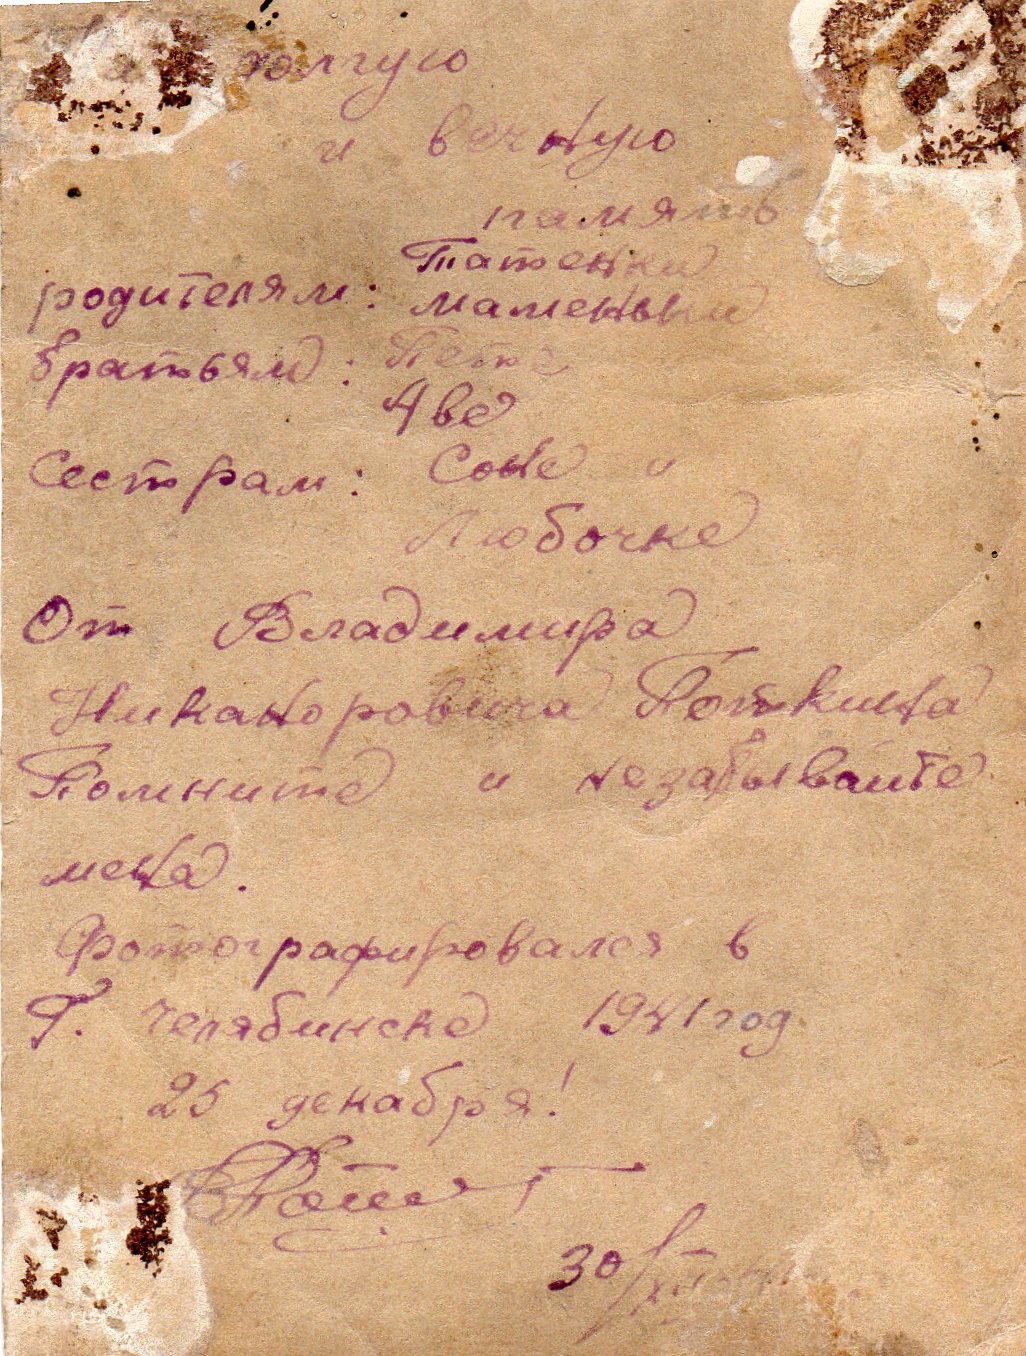 долгую
и вечную
память
Татеньки
родителям: маменьки
братьям: Петке
Аве
Сестрам: Соне и
Любочке
От Владимира
Никаноровича Поткина
Помните и незабывайте
меня.
Фотографировался в
г. Челябинске 1941 год
25 декабря!
30/XII